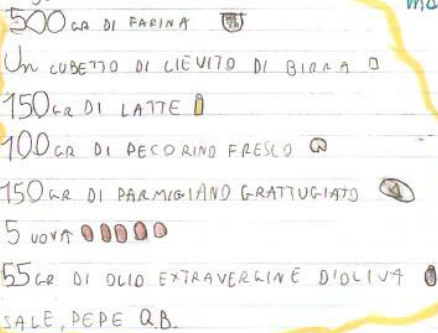 500 GR DI FARINA
UN CUBETTO DI LIEVITO DI BIRRA
150 GR DI LATTE
100 GR DI PECORINO FRESCO
150 GR DI PARMIGIANO GRATTUGIATO
5 UOVA
55 GR DI OLIO EXTRAVERGINE D'OLIVA
SALE, PEPE Q.B.